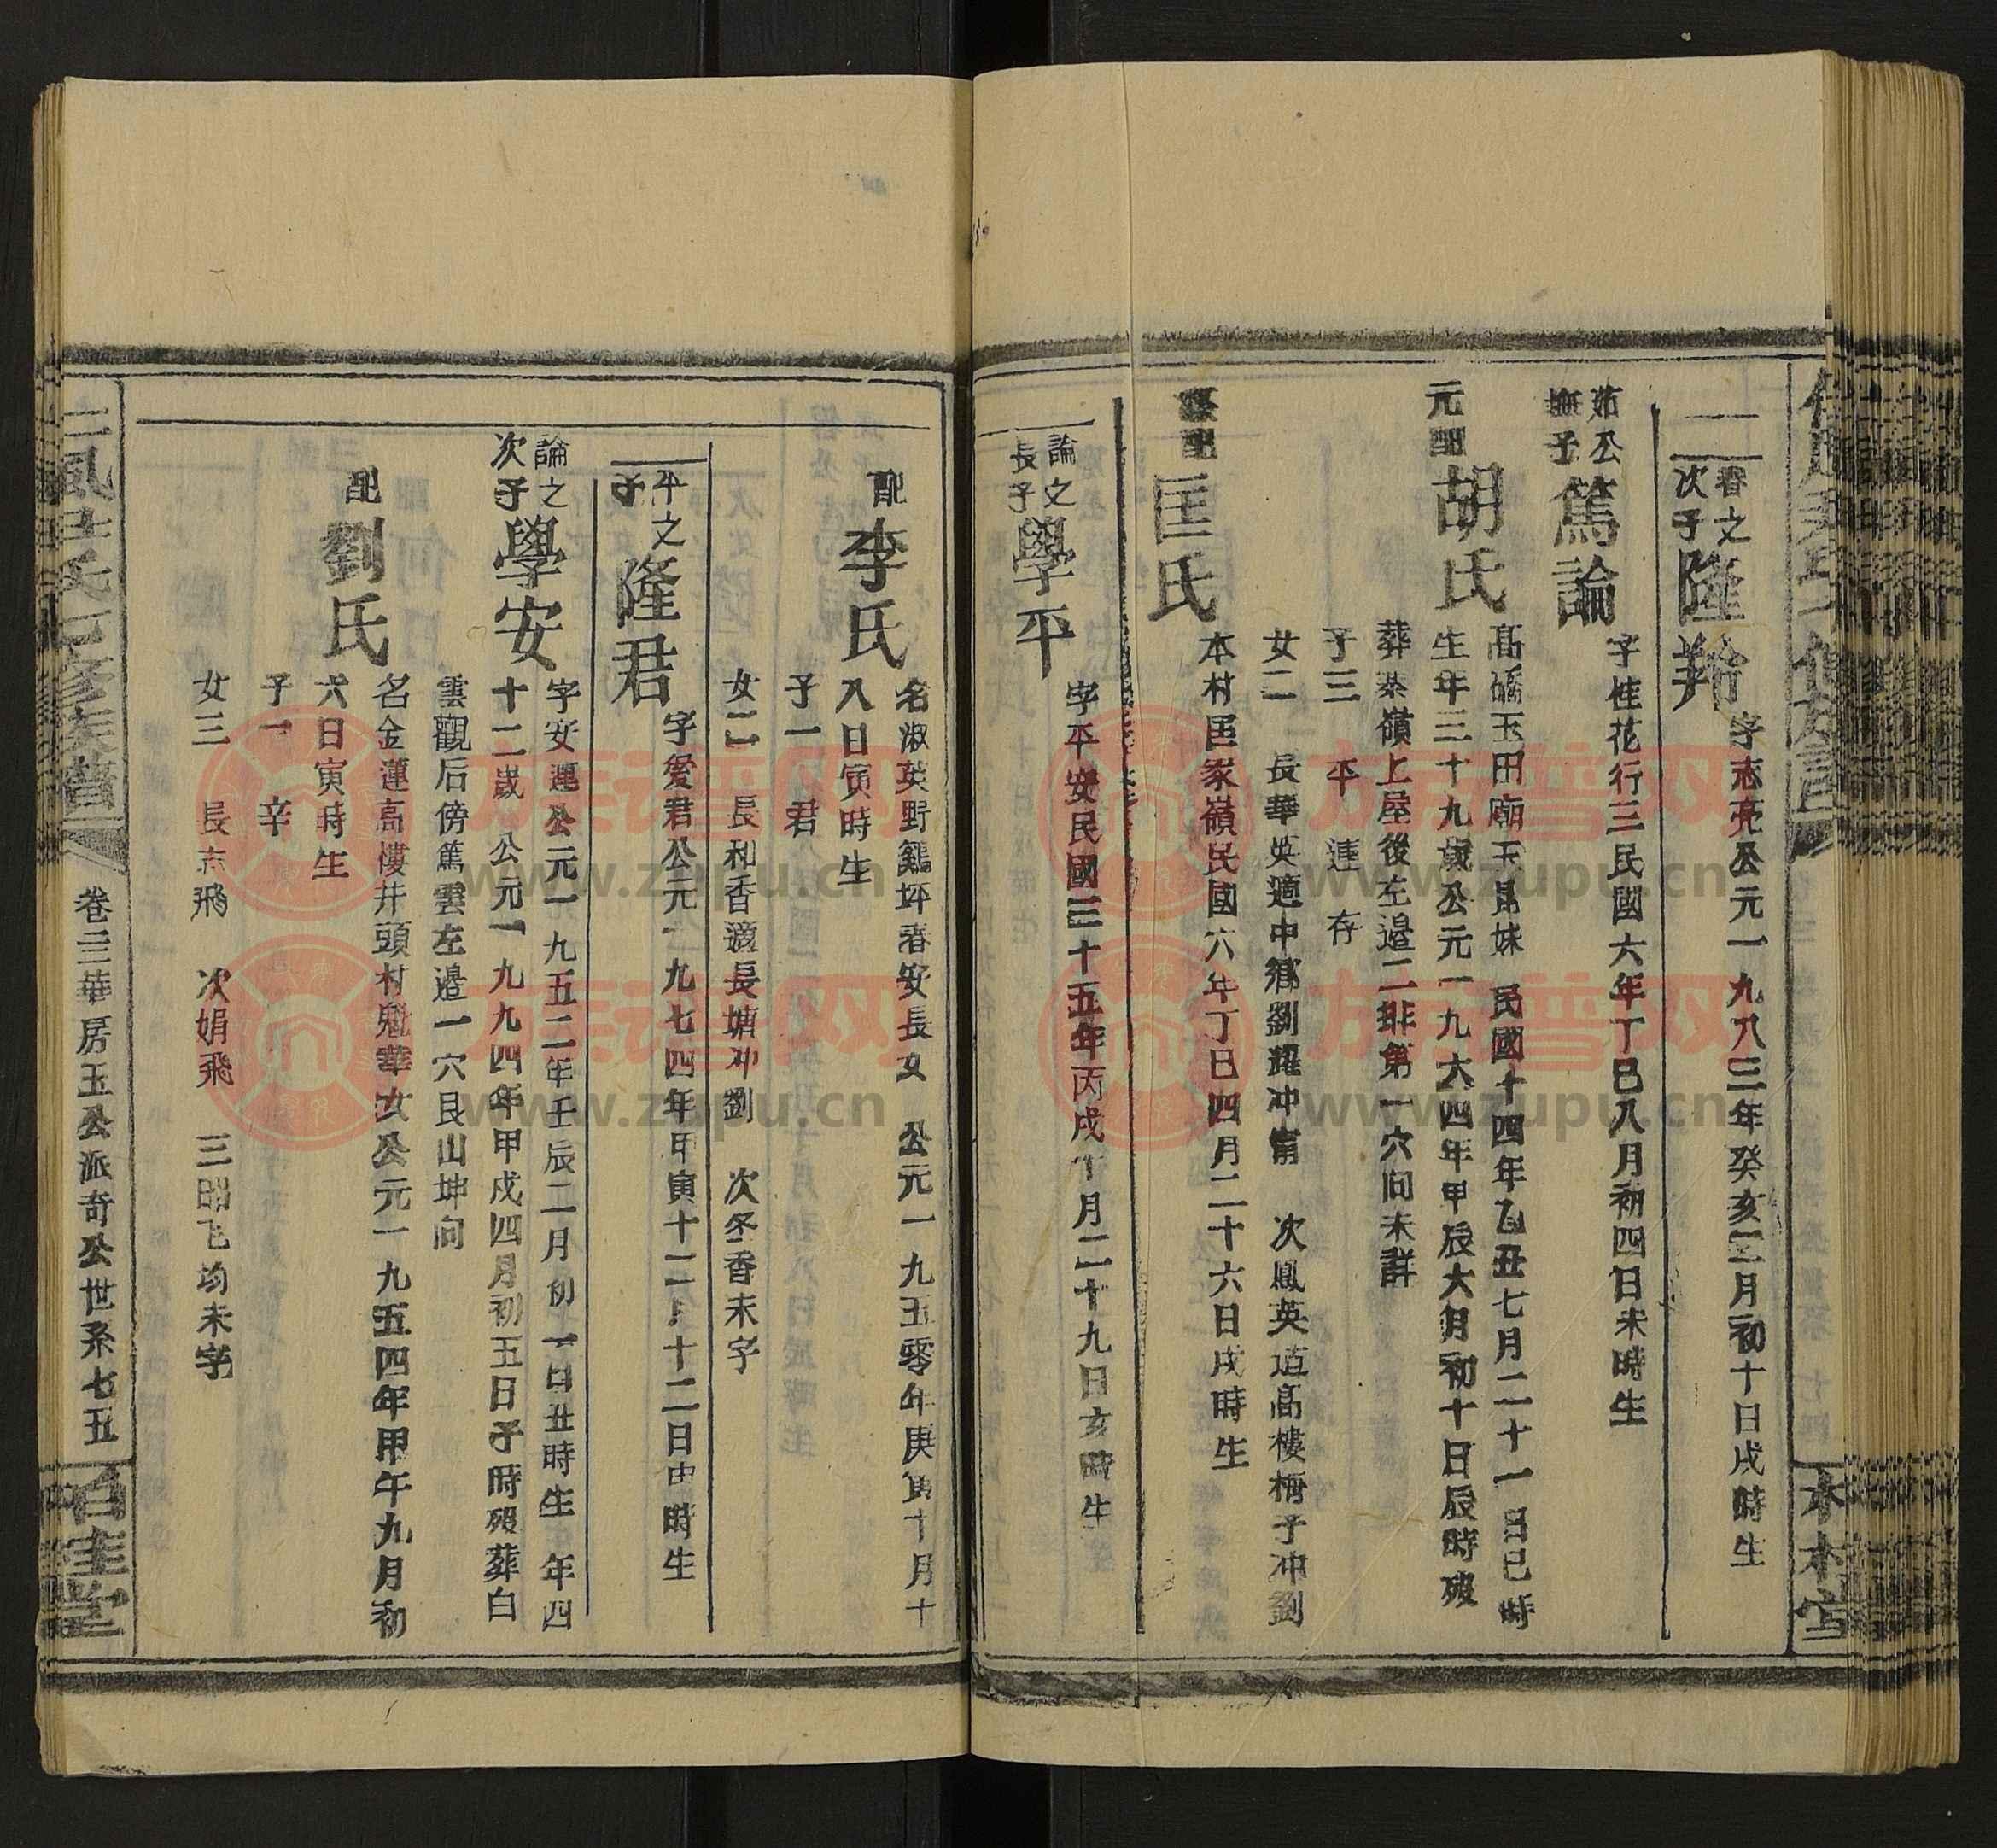 本木堂
春之
次子
隆羚
字志亮公元一九八三年癸亥二月初十日戌時生
茹公
撫子
篤論
字桂花行三民國六年丁巳八月初四日未時生
元配
胡氏
高橋玉田廟玉昆妹 民國十四年乙丑七月二十一日巳時
生年三十九歲公元一九六四年甲辰六月初十日辰時歿
葬茶嶺上屋後左邊二排第一穴向未詳
子三 平 連 存
女二 長華英適中鄉劉耀冲甯 次鳳英适高樓梅子冲劉
配
匡氏
本村匡家嶺民國六年丁巳四月二十六日戌時生
論之
長子
學平
字平安民國三十五年丙戌十月二十九日亥時生
配
李氏
名淑英野鷄坪春安長女 公元一九五零年庚寅十月十
八日寅時生
子一 君
女二 長和香適長塘冲劉 次冬香未字
平之
子
隆君
字愛君公元一九七四年甲寅十二月十二日申時生
論之
次子
學安
字安運公元一九五二年壬辰二月初一日丑時生 年四
十二歲 公元一九九四年甲戌四月初五日子時歿葬白
雲觀后傍篤雲左邊一穴艮山坤向
配
劉氏
名金蓮高樓井頭村魁華女公元一九五四年甲午九月初
六日寅時生
子一 辛
女三 長志飛 次娟飛 三昭飞均未字
氏七修族譜
卷三華房玉公派奇公世系七五
族譜网
www.zupu.cn